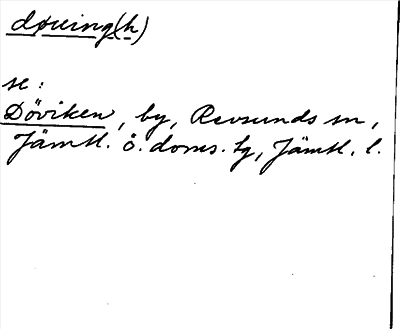 døuing(h)
se:
Döviken, by, Revsunds sn,
Jämtl. ö. doms. tg, Jämtl. l.